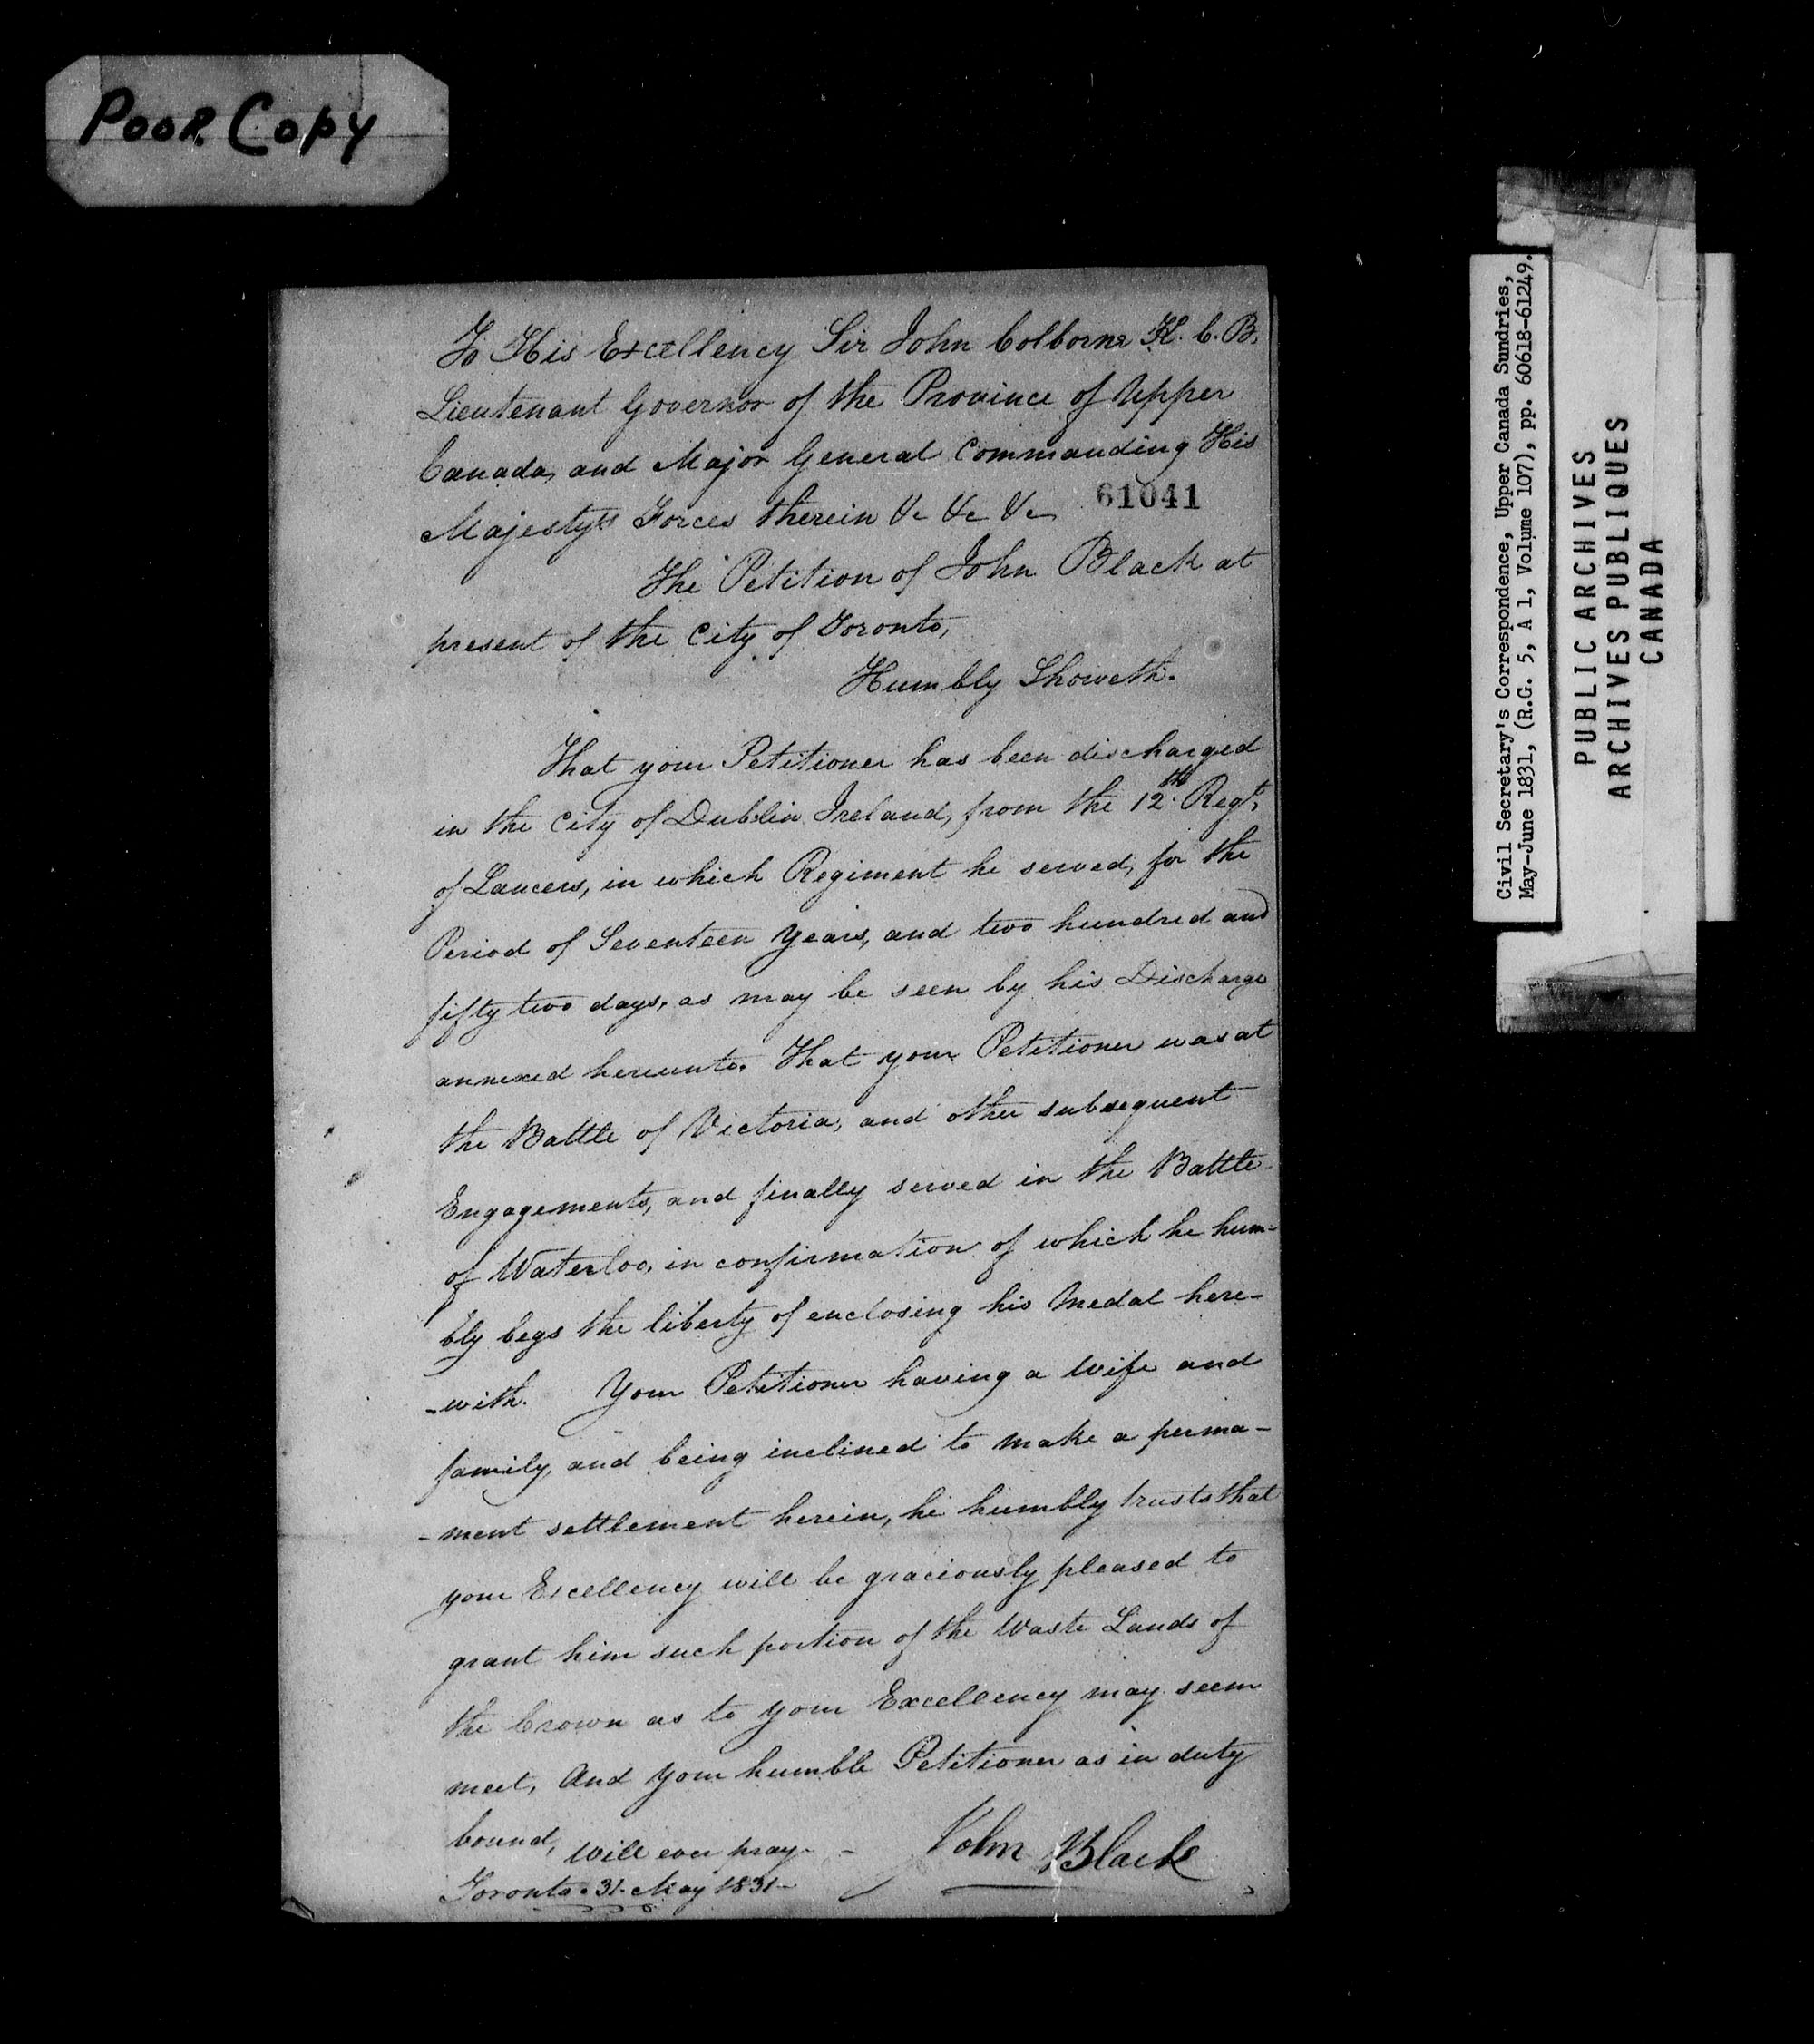 Poor Copy
To His Excellency Sir John Colborne K. C. B.
Lieutenant Governor of the Province of Upper
Canada, and Major General Commanding His
Majesty's Forces therein &c &c &c
61041
The Petition of John Black at
present of the City of Toronto,
Humbly Showeth.
That your Petitioner has been discharged
in the City of Dublin Ireland, from the 12th Regt.
of Lancers, in which Regiment he served, for the
Period of Seventeen Years, and two hundred and
fifty two days, as may be seen by his Discharge
annexed hereunto. That your Petitioner was at
the Battle of Victoria, and other subsequent
Engagements, and finally served in the Battle
of Waterloo, in confirmation of which he hum-
bly begs the liberty of enclosing his Medal here-
-with. Your Petitioner having a Wife and
family, and being inclined to make a perma-
-ment settlement herein, he humbly trusts that
your Excellency will be graciously pleased to
grant him such portion of the Waste Lands of
the Crown as to your Excellency may seem
meet, And your humble Petitioner as in duty
bound, will ever pray -
John Black
Toronto 31 May 1831
Civil Secretary's Correspondence, Upper Canada Sundries,
May-June 1831, (R.G. 5, A 1, Volume 107), pp. 60618-61249.
PUBLIC ARCHIVES
ARCHIVES PUBLIQUES
CANADA